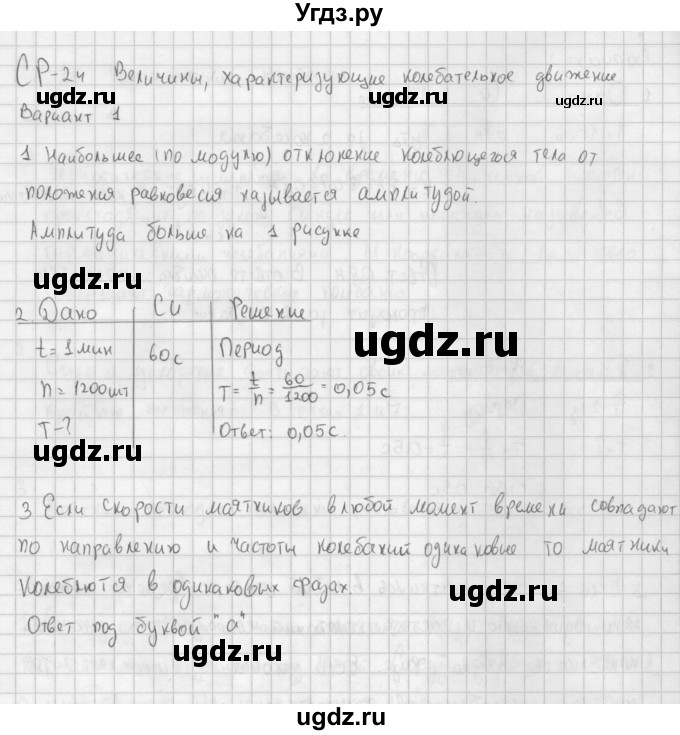 Угдз.ру
СР-24 Величины, характеризующие колебательное движение
ugdz.ru ugdz.ru ugdz.ru
Вариант 1
1 Наибольшее (по модулю) отклонение колеблющегося тела от
положения равновесия называется амплитудой.
Амплитуда больше на 1 рисунке
ugdz.ru
2. Дано СИ Решение
t = 1 мин 60 с Период
ugdz.ru
n = 1200 шт T = t/n = 60/1200 = 0,05 с
T - ? Ответ: 0,05 с.
ugdz.ru
3 Если скорости маятников в любой момент времени совпадают
по направлению и частоты колебаний одинаковые то маятники
колеблются в одинаковых фазах.
ugdz.ru
Ответ под буквой "а"
ugdz.ru
ugdz.ru